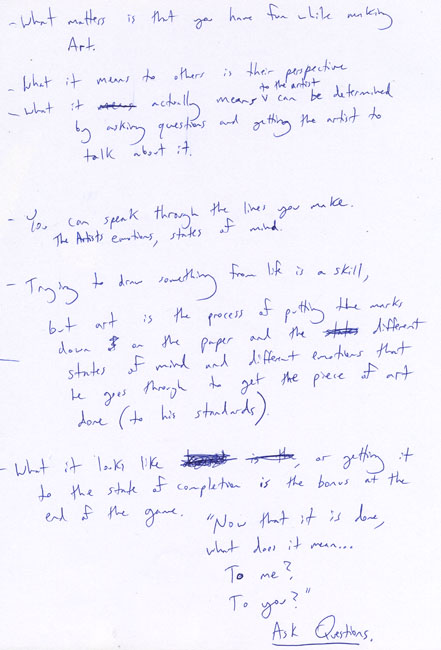 - What matters is that you have fun while making
Art.
- What it means to others is their perspective
- What it means actually means to the artist can be determined
by asking questions and getting the artist to
talk about it.
- You can speak through the lines you make.
The Artists emotions, states of mind.
- Trying to draw something from life is a skill,
but art is the process of putting the marks
down on the paper and the states different
states of mind and different emotions that
he goes through to get the piece of art
done (to his standards).
- What it looks like is the, or getting it
to the state of completion is the bonus at the
end of the game.
"Now that it is done,
what does it mean...
To me?
To you?"
Ask Questions.